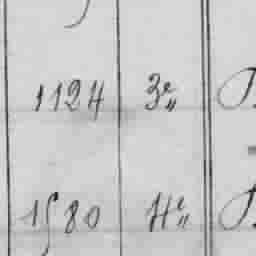 1124 3e„
1580 4e„